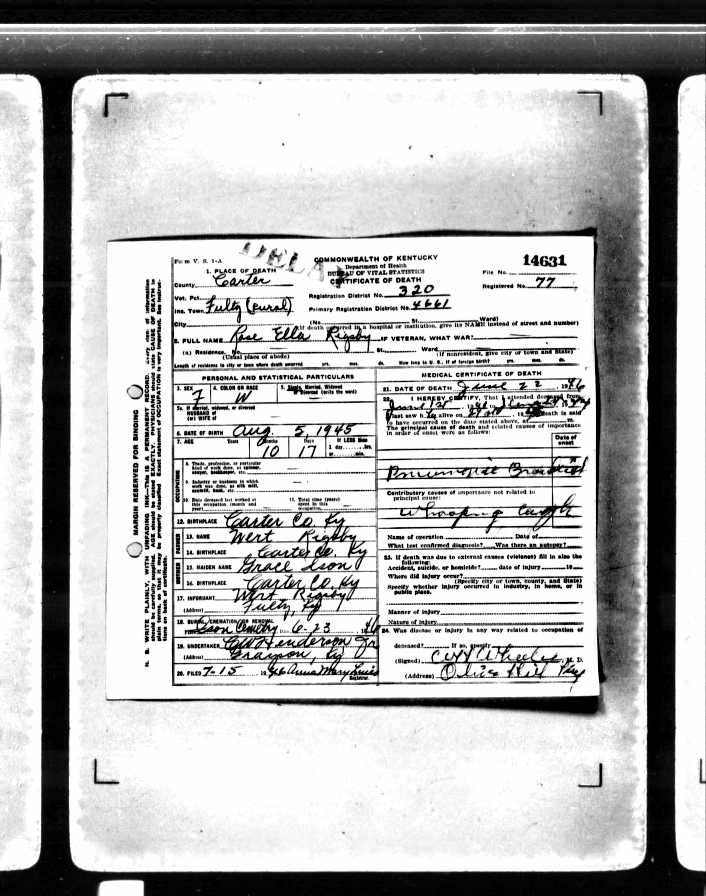 DELAY
Form V. S. 1-A
COMMONWEALTH OF KENTUCKY
Department of Health
BUREAU OF VITAL STATISTICS
CERTIFICATE OF DEATH
14631
File No.
Registered No. 77
1. PLACE OF DEATH
County Carter
Vot. Pct.
Inc. Town Fultz (rural)
City
Registration District No. 320
Primary Registration District No. 4661
(No. St. Ward)
(If death occurred in a hospital or institution, give its NAME instead of street and number)
2. FULL NAME Rose Ella Rigsby IF VETERAN, WHAT WAR?
(a) Residence. No. St. Ward
(Usual place of abode) (If nonresident, give city or town and State)
Length of residence in city or town where death occurred yrs. mos. ds. How long in U. S., if of foreign birth? yrs. mos. ds.
PERSONAL AND STATISTICAL PARTICULARS
3. SEX F
4. COLOR OR RACE W
5. Single, Married, Widowed or Divorced (write the word)
5a. If married, widowed, or divorced
HUSBAND of
(or) WIFE of
6. DATE OF BIRTH Aug. 5, 1945
7. AGE Years Months 10 Days 17 If LESS than 1 day hrs. or min.
OCCUPATION
8. Trade, profession, or particular kind of work done, as spinner, sawyer, bookkeeper, etc.
9. Industry or business in which work was done, as silk mill, sawmill, bank, etc.
10. Date deceased last worked at this occupation (month and year)
11. Total time (years) spent in this occupation
12. BIRTHPLACE Carter Co. Ky
FATHER
13. NAME Wert Rigsby
14. BIRTHPLACE Carter Co. Ky
MOTHER
15. MAIDEN NAME Grace Ison
16. BIRTHPLACE Carter Co. Ky
17. INFORMANT Wert Rigsby
(Address) Fultz, Ky
18. BURIAL, CREMATION OR REMOVAL
Ison Cemetry 6-23 46
19. UNDERTAKER Henderson Jr
(Address) Grayson, Ky
20. FILED 7-15 1946 Anna Mary
Registrar.
MEDICAL CERTIFICATE OF DEATH
21. DATE OF DEATH June 22 1946
22. I HEREBY CERTIFY, That I attended deceased from
last saw h alive on death is said
to have occurred on the date stated above, at m.
The principal cause of death and related causes of importance
in order of onset were as follows:
Date of onset
Contributory causes of importance not related to
principal cause:
Whooping Cough
Name of operation Date of
What test confirmed diagnosis? Was there an autopsy?
23. If death was due to external causes (violence) fill in also the
following:
Accident, suicide, or homicide? date of injury 19
Where did injury occur?
(Specify city or town, county, and State)
Specify whether injury occurred in industry, in home, or in
public place.
Manner of injury
Nature of injury
24. Was disease or injury in any way related to occupation of
deceased? If so, specify
(Signed) M. D.
(Address) Olive Hill Ky
MARGIN RESERVED FOR BINDING
N. B. WRITE PLAINLY, WITH UNFADING INK—THIS IS A PERMANENT RECORD.